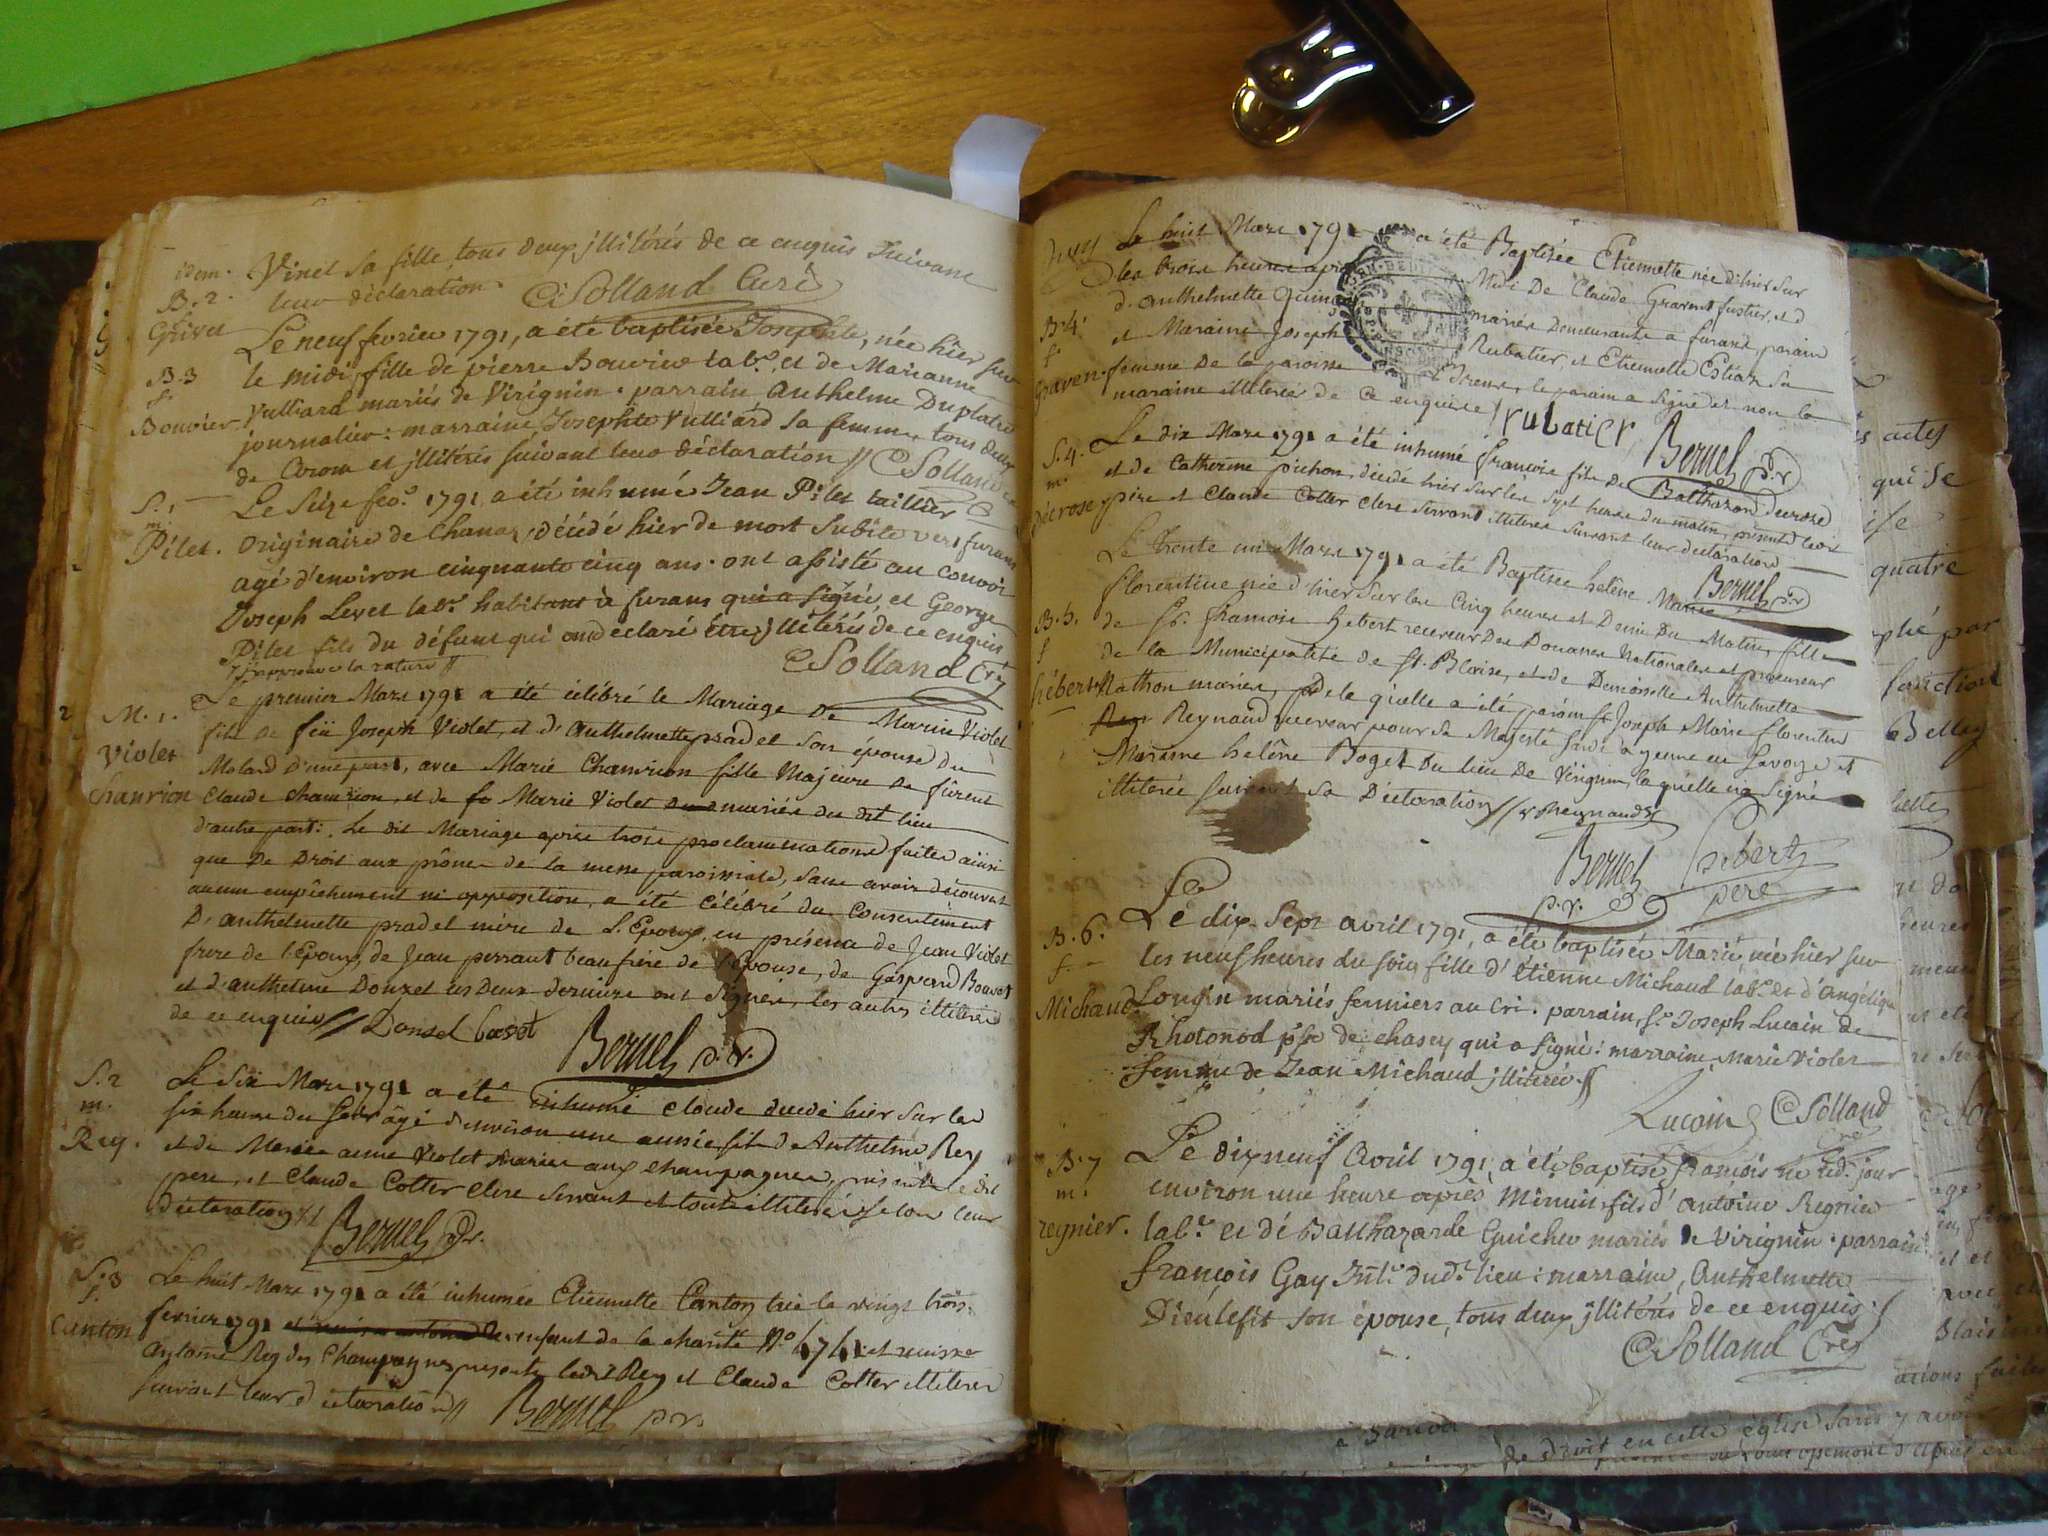 idem.
B. 2.
f.
Grivet
Vinet sa fille, tous deux jllitérés de ce enquis suivant
leur déclaration
C. Solland Curé
B. 3
f.
Bouvier
Le neuf fevrier 1791, a été baptisée Josephte, née hier sur
le midi, fille de pierre Bouvier lab.r et de Marianne
Vulliard mariés de Virignin. parrain Anthelme Duplatre
journalier: marraine, Josephte Vulliard sa femme, tous deux
de et jllitérés suivant leur déclaration // C Solland
S. 1
m.
Pilet.
Le Seize fev.r 1791 a été inhumé Jean Pilet taillier
originaire de Chanaz, décédé hier de mort subite vers furans
agé d'environ cinquante cinq ans. ont assisté au convoi
Joseph Levet lab.r habitant à furans qui a signé, et George
Pilet fils du défunt qui on déclaré être jllitérés de ce enquis
j'approuve la rature //
C Solland Cré
M. 1.
Violet
Chanrion
Le premier Mars 1791 a été célébré le Mariage de Marin Violet
fils de feü Joseph Violet, et d'Anthelmette pradel son épouse du
Molard d'une part, avec Marie Chanrion fille Majeure de fürent
Claude Chanrion, et de fe Marie Violet mariés du dit lieu
d'autre part: Le dit Mariage après trois proclammations faites ainsi
que de Droit aux prônes de la messe paroissiale, sans avoir découvert
aucun empêchement ni opposition, a été célébré du Consentement
D'anthelmette pradel mère de L'Epoux, en présence de Jean Violet
frere de l'Epoux, de Jean perraut beaufrère de l'Epouse, de Gaspard Bauvet
et d'anthelme Donzel les Deux derniers ont signés, les autres illitérés
de ce enquis // Donsel
Bernel p. vr.
S. 2
m.
Rey.
Le Six Mars 1791 a été inhumé Claude decedé hier sur les
six heures du Soir âgé d'environ une année fils de Anthelme Rey
et de Marie anne Violet mariés aux champagnes, présents le dit
pere, et Claude Cotter clerc servant et touts illiterés selon leur
déclaration //
Bernel p. vr.
S. 3
f.
Canton
Le huit Mars 1791 a été inhumée Etiennette Canton née le vingt trois
fevrier 1791 enfant de la charité N.o 6761 et
antoine Rey des Champagnes présents ledit Rey et Claude Cotter illiteres
suivant leur déclaration //
Bernel p. vr.
B. 4.
f.
Graven
Le huit Mars 1791 a été Baptisée Etiennette née d'hier sur
les trois heures après Midi De Claude Gravent fustier, et d
d'anthelmette mariés Demeurants a furans, parain
et Maraine Joseph Rubatier, et Etiennette Estian sa
femme De la paroisse le parain a signé et non la
maraine illitérée de ce enquise
rubatier
Bernel p. vr.
S. 4.
m.
decrose
Le dix Mars 1791 a été inhumé françois fils De Balthazard decrose
et de Catherine pichon, décédé hier sur les sept heures du matin, présents led.
père et Claude Cotter clerc servant illiteres suivant leur declaration
Bernel p. vr.
B. 5.
f
hébert
Le trente un Mars 1791 a été Baptisée helène Marie
florentine née d'hier sur les Cinq heures et Demi Du Matin, fille
de Sr. francois hebert receveur Des Douanes Nationales et procureur
de la Municipalité de St. Blaise, et de Demoiselle Anthelmette
Nathon mariés, de laquelle a été parain Sr Joseph Marie florentin
Reynaud receveur pour Sa Majesté Sarde à yenne en Savoye et
Maraine helène Boget Du lieu De Virignin, laquelle na signé
illiterée suivant sa Déclaration // Reynaud
Bernel
p. vr.
hebert
pere
B. 6.
f.
Michaud
Le dix Sept avril 1791, a été baptisée Marie, née hier sur
les neuf heures du soir, fille d'Étienne Michaud lab.r et d'Angélique
Lougin mariés fermiers au Cri. parrain, S.r Joseph Lucain de
Rhotonod p.sse de chasey qui a signé: marraine, Marie Violet
femme de Jean Michaud jlliterée. //
Lucain C Solland
Cré
B. 7
m.
regnier.
Le dixneuf Avril 1791, a été baptisé François né led. jour
environ une heure après Minuit, fils d'Antoine Regnier
lab.r et de Balthazarde Guicher mariés de Virignin. parrain
François Gay dud. lieu: marraine, Anthelmette
Dieulefit son épouse, tous deux jllitérés de ce enquis. //
C Solland Cré
actes
qui se
quatre
par
fonction
Belley
heures
de droit en cette église sans y avoir